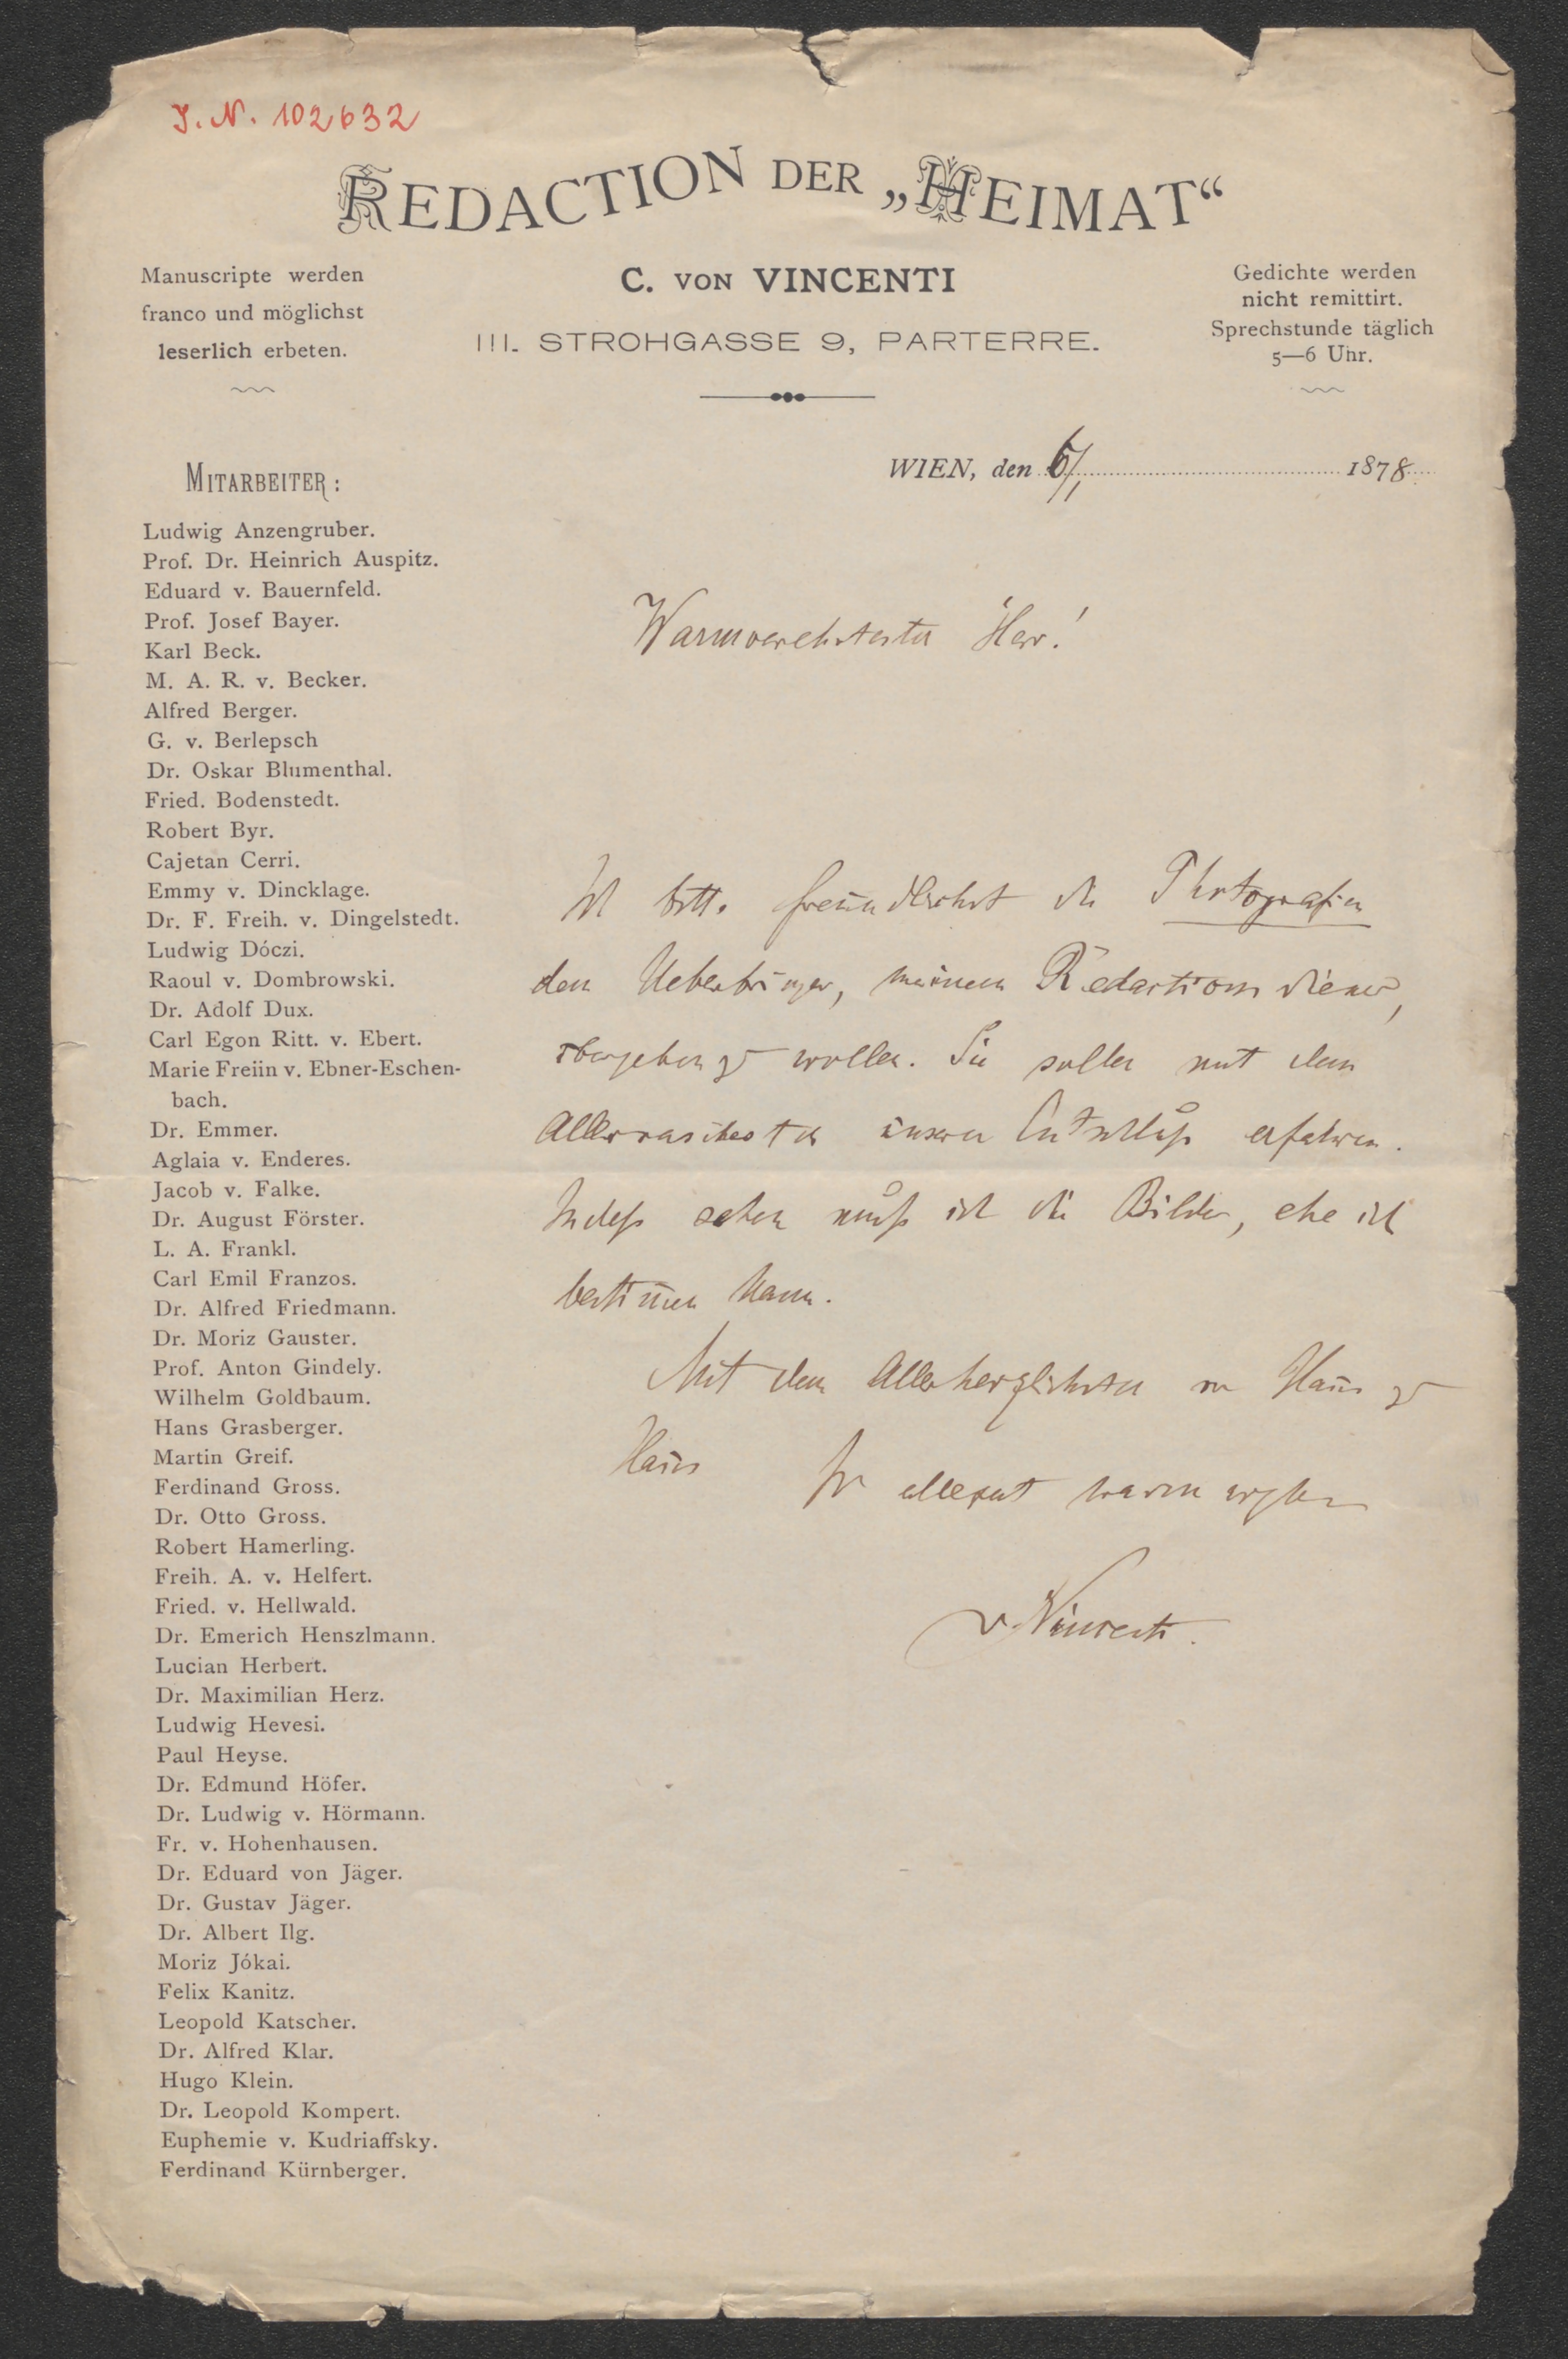 J. N. 102632
REDACTION DER „HEIMAT“
Manuscripte werden
franco und möglichst
leserlich erbeten.
C. VON VINCENTI
III. STROHGASSE 9, PARTERRE.
Gedichte werden
nicht remittirt.
Sprechstunde täglich
5—6 Uhr.
WIEN, den 6/1 1878
MITARBEITER:
Ludwig Anzengruber.
Prof. Dr. Heinrich Auspitz.
Eduard v. Bauernfeld.
Prof. Josef Bayer.
Karl Beck.
M. A. R. v. Becker.
Alfred Berger.
G. v. Berlepsch
Dr. Oskar Blumenthal.
Fried. Bodenstedt.
Robert Byr.
Cajetan Cerri.
Emmy v. Dincklage.
Dr. F. Freih. v. Dingelstedt.
Ludwig Dóczi.
Raoul v. Dombrowski.
Dr. Adolf Dux.
Carl Egon Ritt. v. Ebert.
Marie Freiin v. Ebner-Eschen-
bach.
Dr. Emmer.
Aglaia v. Enderes.
Jacob v. Falke.
Dr. August Förster.
L. A. Frankl.
Carl Emil Franzos.
Dr. Alfred Friedmann.
Dr. Moriz Gauster.
Prof. Anton Gindely.
Wilhelm Goldbaum.
Hans Grasberger.
Martin Greif.
Ferdinand Gross.
Dr. Otto Gross.
Robert Hamerling.
Freih. A. v. Helfert.
Fried. v. Hellwald.
Dr. Emerich Henszlmann.
Lucian Herbert.
Dr. Maximilian Herz.
Ludwig Hevesi.
Paul Heyse.
Dr. Edmund Höfer.
Dr. Ludwig v. Hörmann.
Fr. v. Hohenhausen.
Dr. Eduard von Jäger.
Dr. Gustav Jäger.
Dr. Albert Ilg.
Moriz Jókai.
Felix Kanitz.
Leopold Katscher.
Dr. Alfred Klar.
Hugo Klein.
Dr. Leopold Kompert.
Euphemie v. Kudriaffsky.
Ferdinand Kürnberger.
Warmverehrtester Herr!
Ich bitte freundlichst die Photografien
dem Ueberbringer, meinem Redactionsdiener,
übergeben zu wollen. Sie sollen mit dem
Allerraschesten unseren Entschluß erfahren.
Indeß sehen muß ich die Bilder, ehe ich
bestimen kann.
Mit dem Allerherzlichsten von Haus zu
Haus
Ihr allezeit warm ergebener
v. Vincenti.